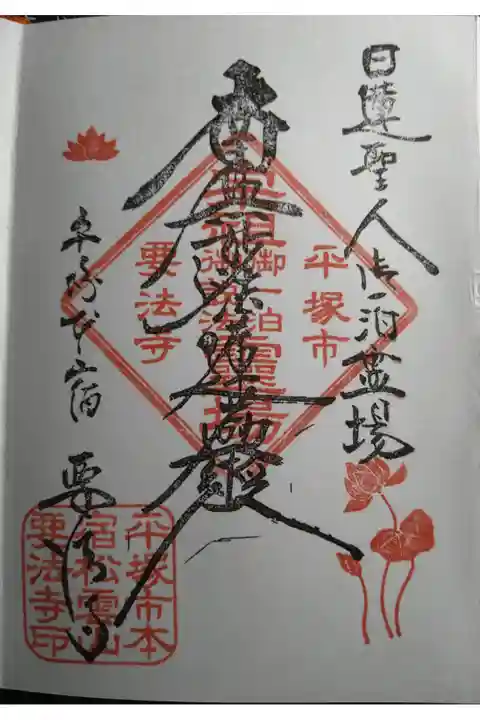 日蓮聖人御一泊霊場
南無妙法蓮華経
平塚本宿 要法寺
平塚市
祖御一泊靈場
要法寺
平塚市本
宿松雲山
要法寺印